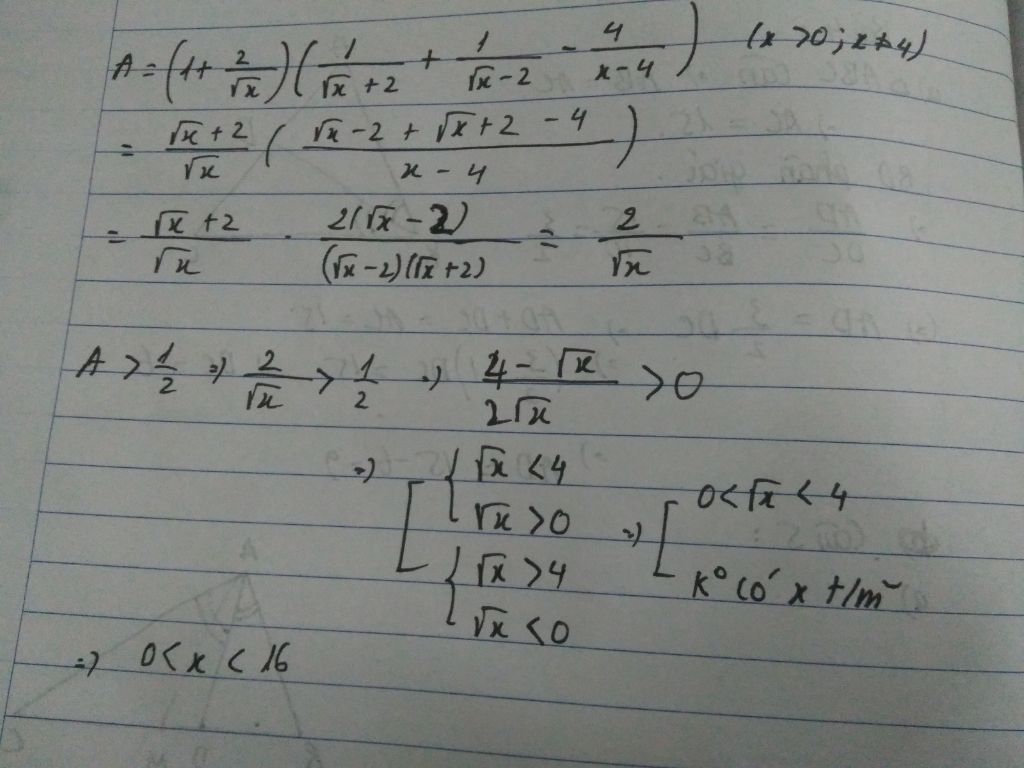 A = (1 + 2/√x)(1/(√x + 2) + 1/(√x - 2) - 4/(x - 4)) (x > 0 ; x ≠ 4)
= (√x + 2)/√x ((√x - 2 + √x + 2 - 4)/(x - 4))
= (√x + 2)/√x . 2(√x - 2)/((√x - 2)(√x + 2)) = 2/√x
A > 1/2 => 2/√x > 1/2 => (4 - √x)/(2√x) > 0
=> [ { √x < 4
√x > 0
{ √x > 4
√x < 0
=> [ 0 < √x < 4
K° có x t/m
=> 0 < x < 16